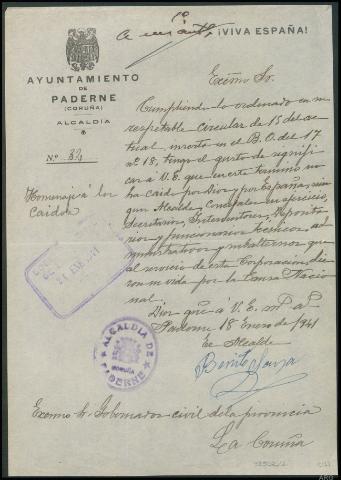 ¡VIVA ESPAÑA!
AYUNTAMIENTO
DE
PADERNE
(CORUÑA)
ALCALDÍA
N.º 32
Homenaje á los
Caidos
Excmo Sr.
Cumpliendo lo ordenado en su
respetable Circular de 15 del ac-
tual, inserta en el B.O. del 17
nº 13, tengo el gusto de signifi-
car á V.E. que en este termino no
ha caido por Dios y por España, nin-
gun Alcalde, Concejales en ejercicio,
Secretarios, Interventores, Deposita-
rios y funcionarios técnicos, ad-
ministrativos y subalternos que
al servicio de esta Corporación, die-
ron su vida por la Causa Nacio-
nal.
Dios gue á V.E. m. a.
Paderne 18 Enero de 1941
El Alcalde
ALCALDIA DE PADERNE
CORUÑA
Excmo Sr. Gobernador civil de la provincia
La Coruña